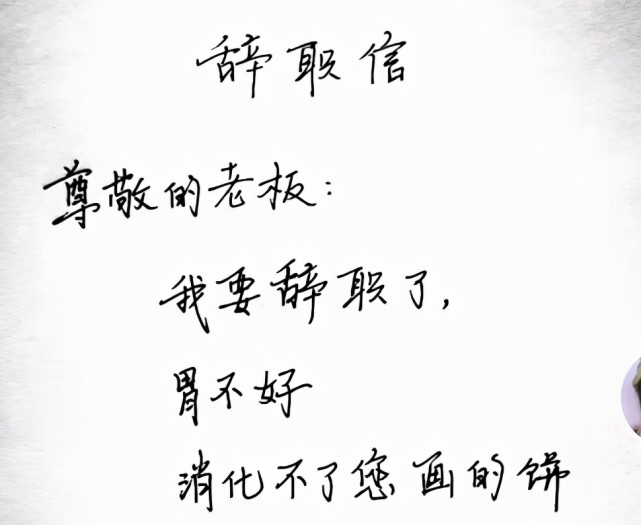 辞职信
尊敬的老板：
我要辞职了，
胃不好
消化不了您画的饼